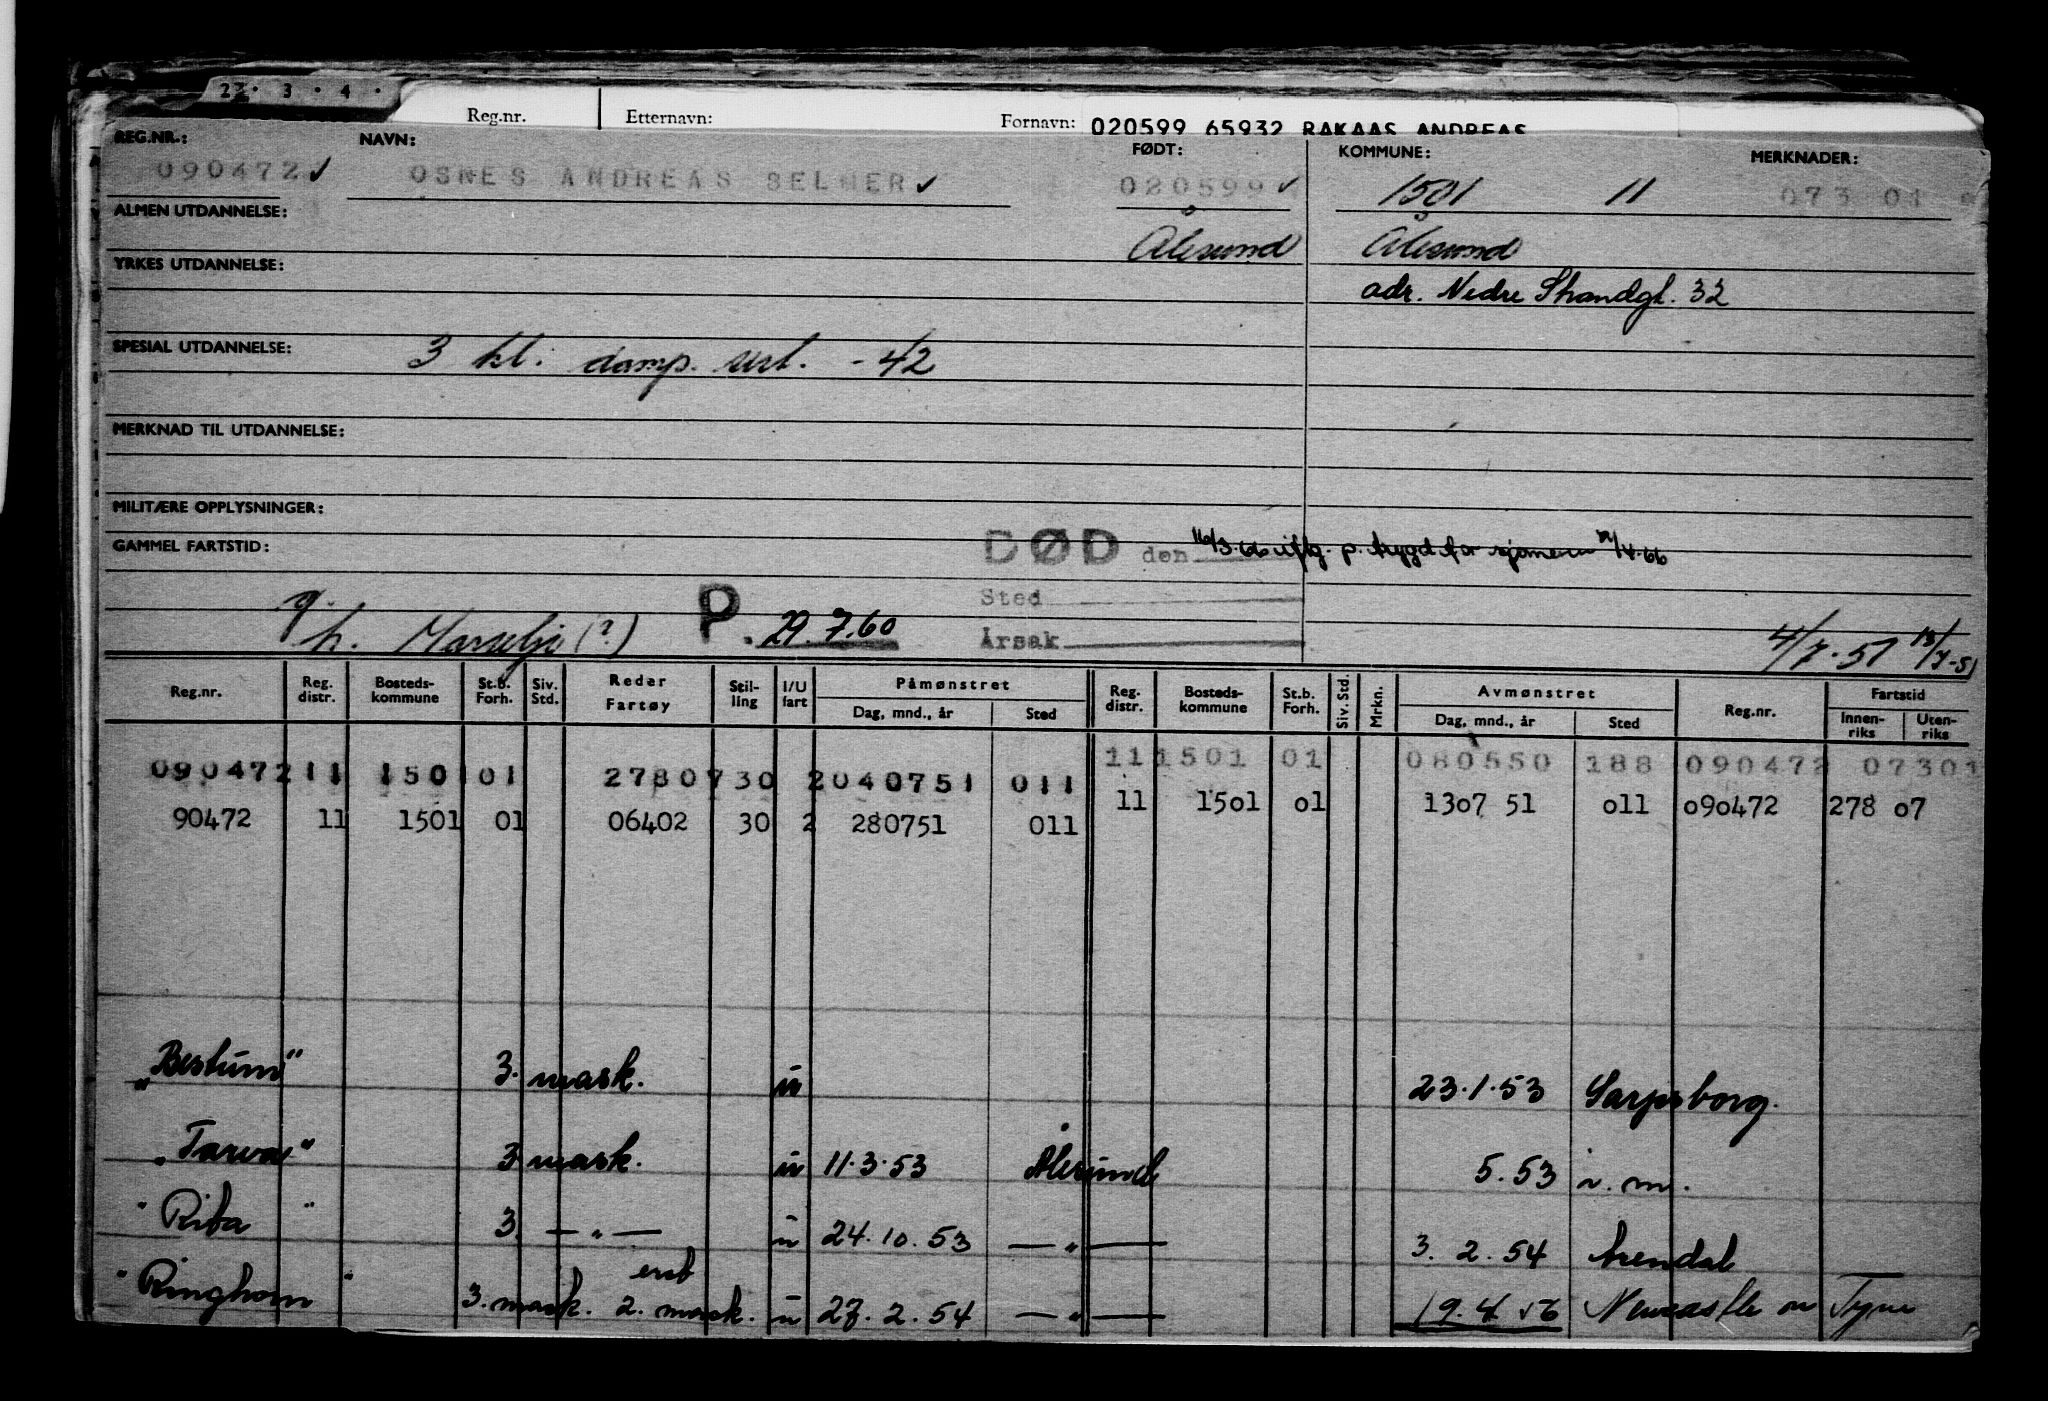 22 · 3 · 4 ·
Reg.nr. Etternavn: Fornavn: 020599 65932 RAKAAS ANDREAS
REG.NR.: NAVN: FØDT: KOMMUNE: MERKNADER:
090472 ✓ OSNES ANDREAS SELMER ✓ 020599 ✓ 1501 11 073 01
ALMEN UTDANNELSE: Ålesund Ålesund
YRKES UTDANNELSE: adr. Nedre Strandgt. 32
SPESIAL UTDANNELSE: 3 kl. damp. sert. - 42
MERKNAD TIL UTDANNELSE:
MILITÆRE OPPLYSNINGER:
GAMMEL FARTSTID: DØD den 16/3-66 iflg. p. trygd for sjømenn /4-66
Sted
h. (?) P. 29.7.60 Årsak 4/7-51 13/7-51
Reg.nr. Reg. distr. Bosteds-kommune St.b. Forh. Siv. Std. Reder Fartøy Stil-ling I/U fart Påmønstret Dag, mnd., år Sted Reg. distr. Bosteds-kommune St.b. Forh. Siv. Std. Mrkn. Avmønstret Dag, mnd., år Sted Reg.nr. Fartstid Innen-riks Uten-riks
11 1501 01 080550 188 090472 07301
090472 11 1501 01 27807 30 2 040751 011
11 1501 01 1307 51 011 090472 278 07
90472 11 1501 01 06402 30 2 280751 011
"Bestum" 3. mask. u 23.1.53 Sarpsborg.
"Tarva" 3 mask. u 11.3.53 Ålesund 5.53 u.m.
"Rita" 3 — " — u 24.10.53 — " — 3.2.54 Arendal
"Ringhorn" 3. mask. erst 2. mask. u 27.2.54 — " — 19.4.56 Newcastle on Tyne